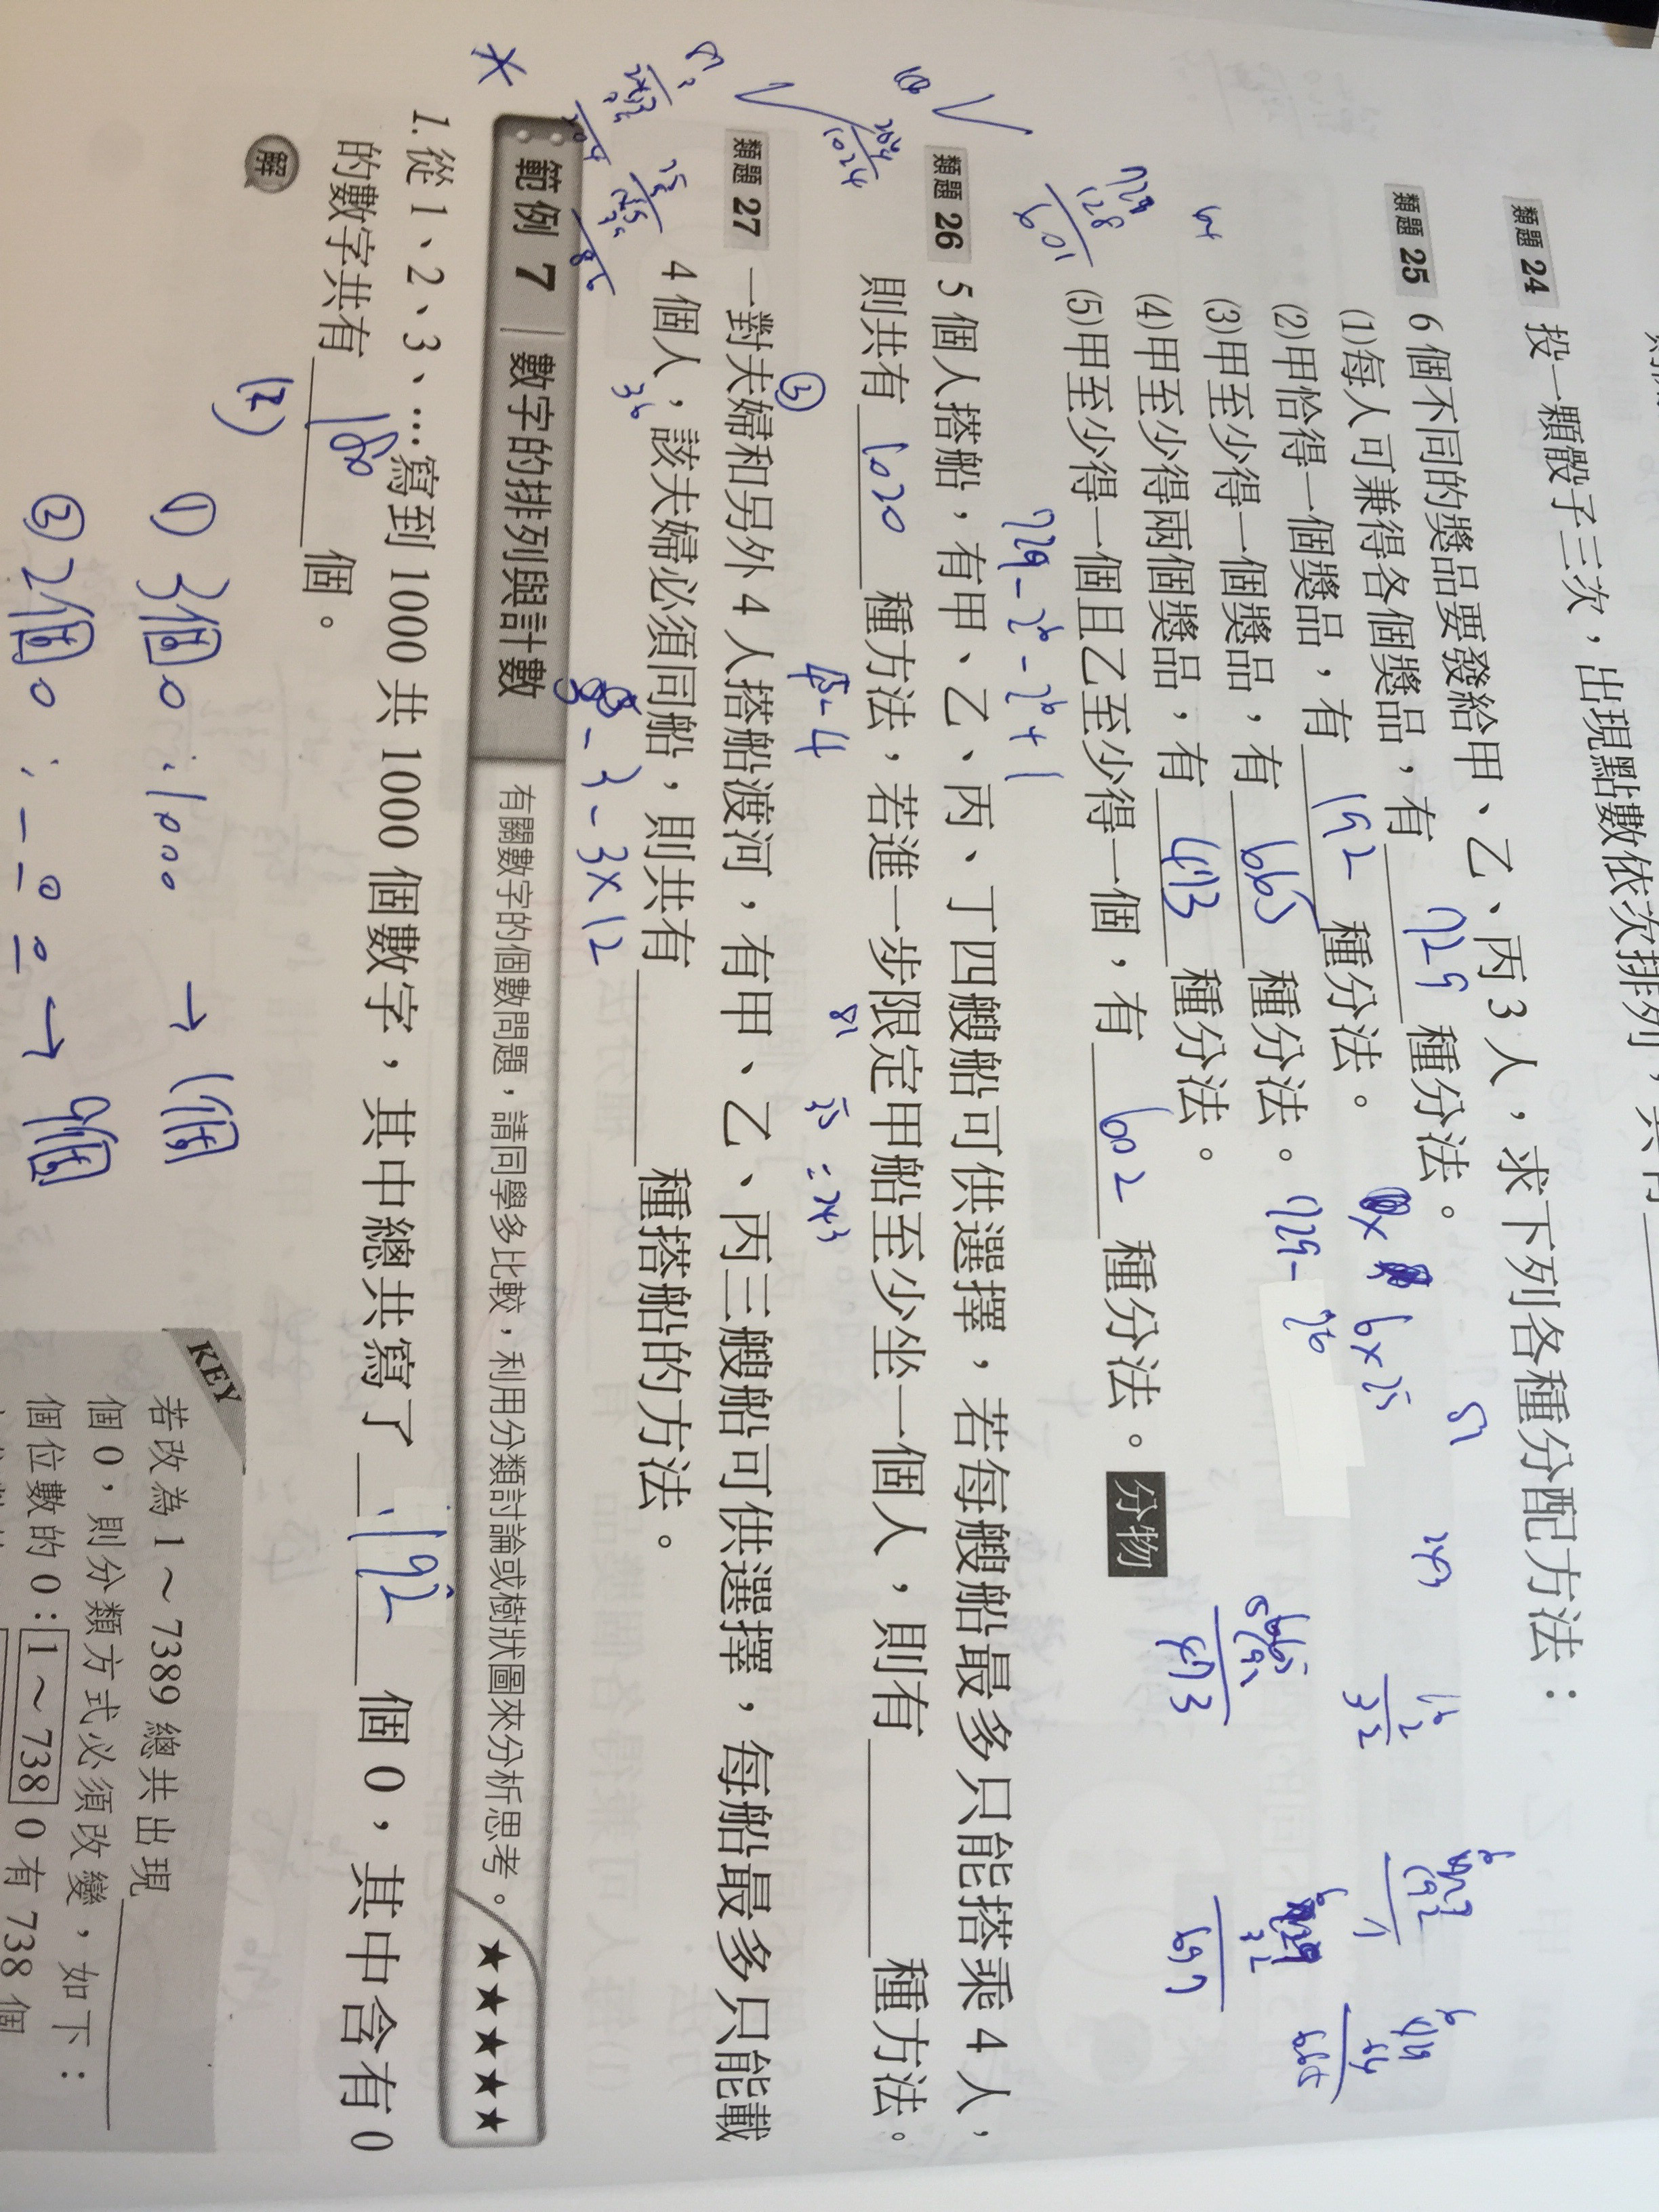 類題 24 投一顆骰子三次，出現點數依次排列，共有
類題 25 6 個不同的獎品要發給甲、乙、丙 3 人，求下列各種分配方法：
(1)每人可兼得各個獎品，有 729 種分法。
(2)甲恰得一個獎品，有 192 種分法。
6×2⁵
(3)甲至少得一個獎品，有 665 種分法。
729-2⁶
(4)甲至少得兩個獎品，有 473 種分法。
(5)甲至少得一個且乙至少得一個，有 602 種分法。 分物
729-2⁶-2⁶+1
類題 26 5 個人搭船，有甲、乙、丙、丁四艘船可供選擇，若每艘船最多只能搭乘 4 人，
則共有 1020 種方法，若進一步限定甲船至少坐一個人，則有 種方法。
4⁵-4
3⁵ = 243
類題 27 一對夫婦和另外 4 人搭船渡河，有甲、乙、丙三艘船可供選擇，每船最多只能載
4 個人，該夫婦必須同船，則共有 種搭船的方法。
3⁵-3-3×12
範例 7 數字的排列與計數 有關數字的個數問題，請同學多比較，利用分類討論或樹狀圖來分析思考。 ★★★★★
1. 從 1、2、3、…寫到 1000 共 1000 個數字，其中總共寫了 192 個 0，其中含有 0
的數字共有 180 個。
解
① 3個0：1000 → 1個
② 2個0：— 0 0 → 9個
KEY
若改為 1～7389 總共出現
個 0，則分類方式必須改變，如下：
個位數的 0：1～738 0 有 738 個